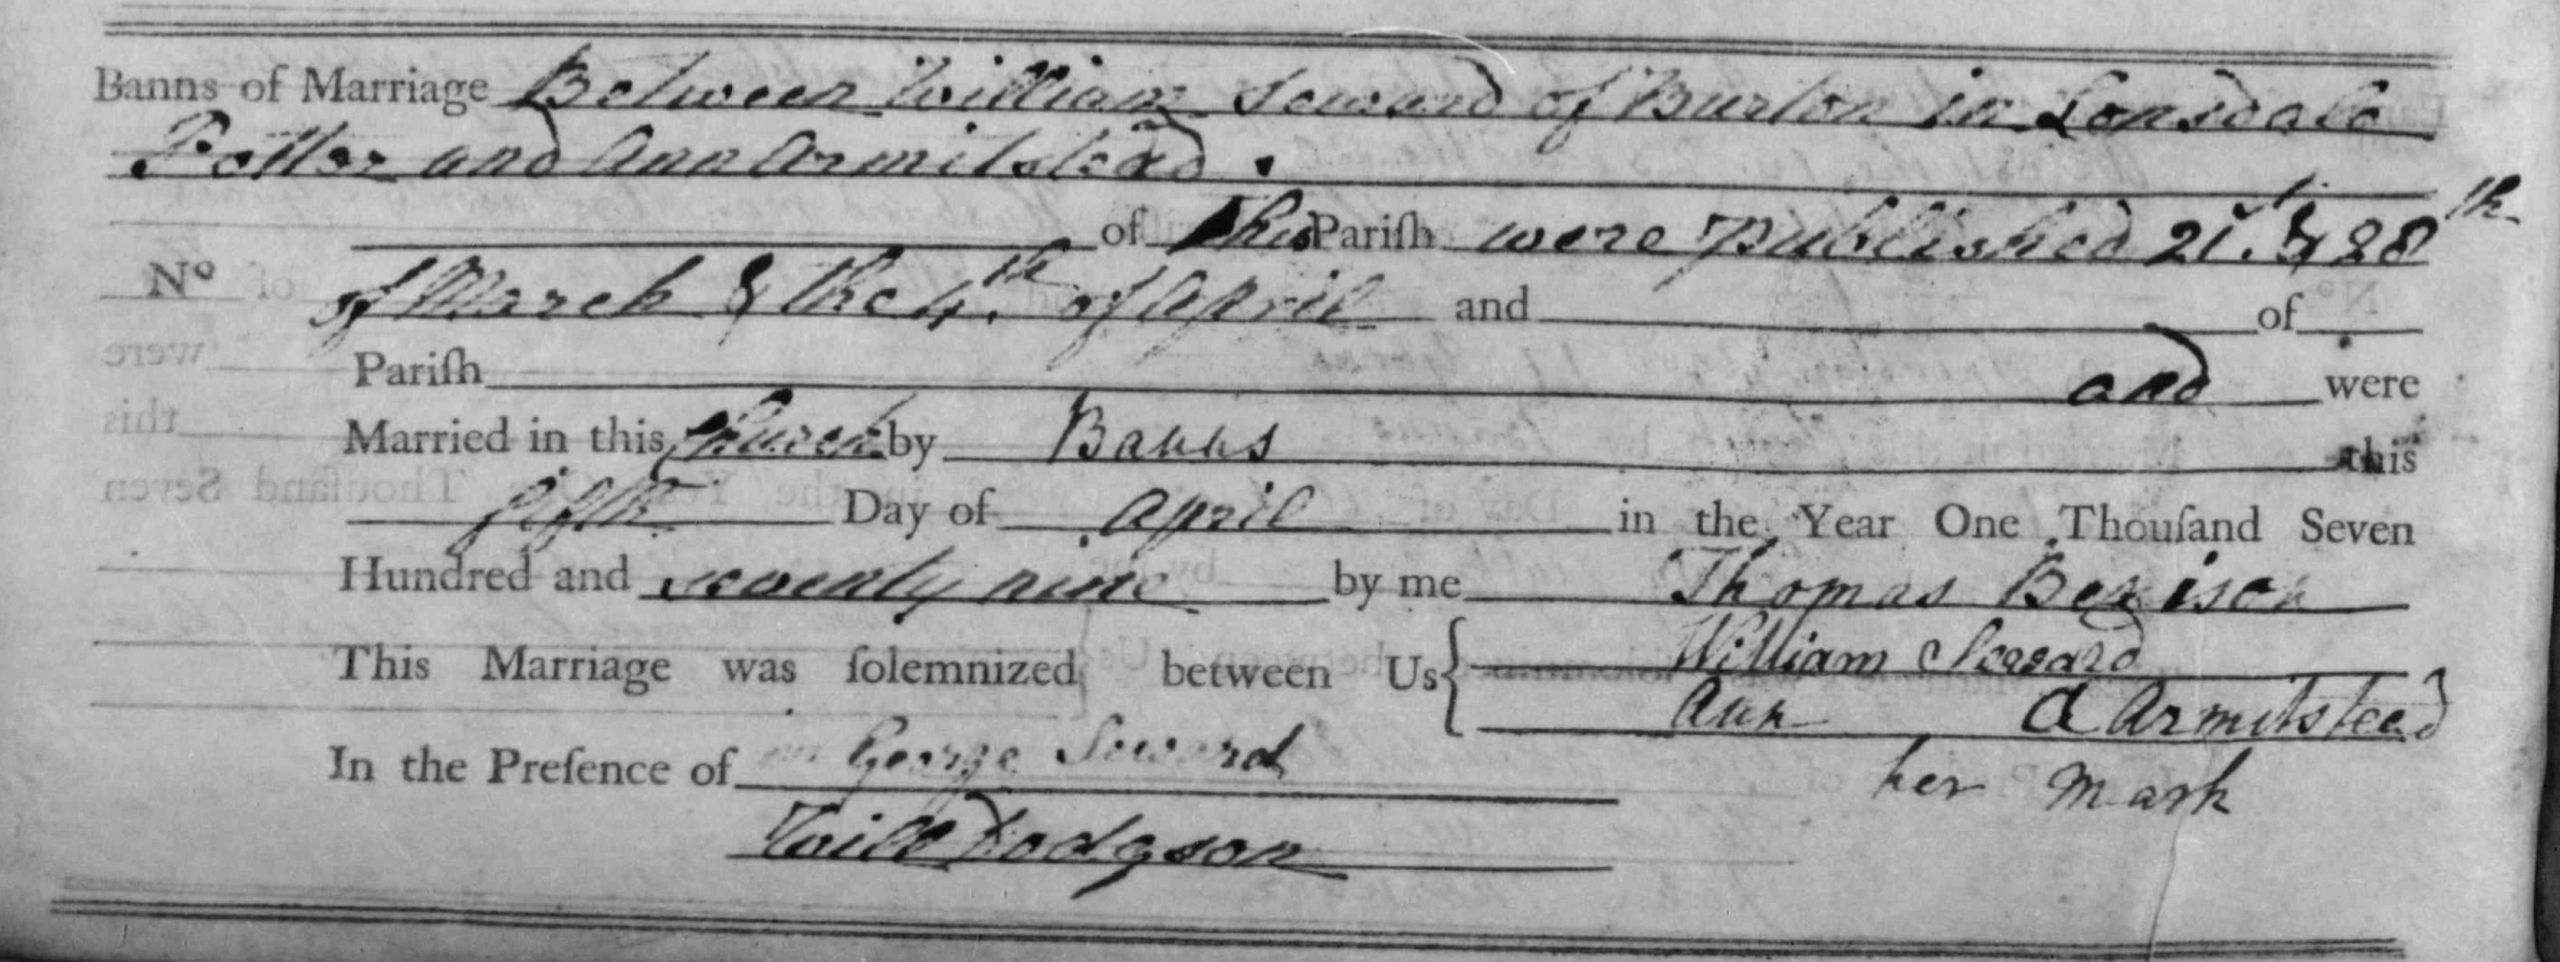 Banns of Marriage Between William Seward of Burton in Lonsdale
Potter and Ann Armitstead.
of this Pariſh were published 21st. & 28th
No of March & the 4th. of April and of
Pariſh and were
Married in this Church by Banns this
fifth Day of April in the Year One Thouſand Seven
Hundred and seventy nine by me Thomas Benison
This Marriage was ſolemnized between Us { William Seward
Ann A Armitstead
her mark
In the Preſence of George Seward
Will Dodgson